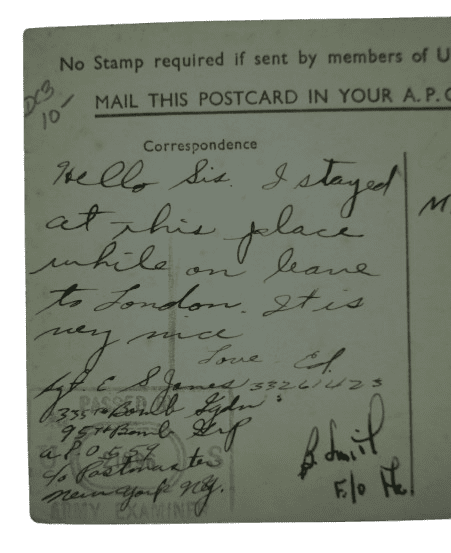 No Stamp required if sent by members of U
MAIL THIS POSTCARD IN YOUR A.P.O
DC3
10/-
Correspondence
Hello Sis. I stayed
at this place
while on leave
to London. It is
very nice
Love Ed.
Sgt E S Jones 33261423
335th Bomb Sqdn
95th Bomb Grp
APO 557
c/o Postmaster
New York NY.
PASSED
S
ARMY EXAMINER
B. Smith
F/O
M